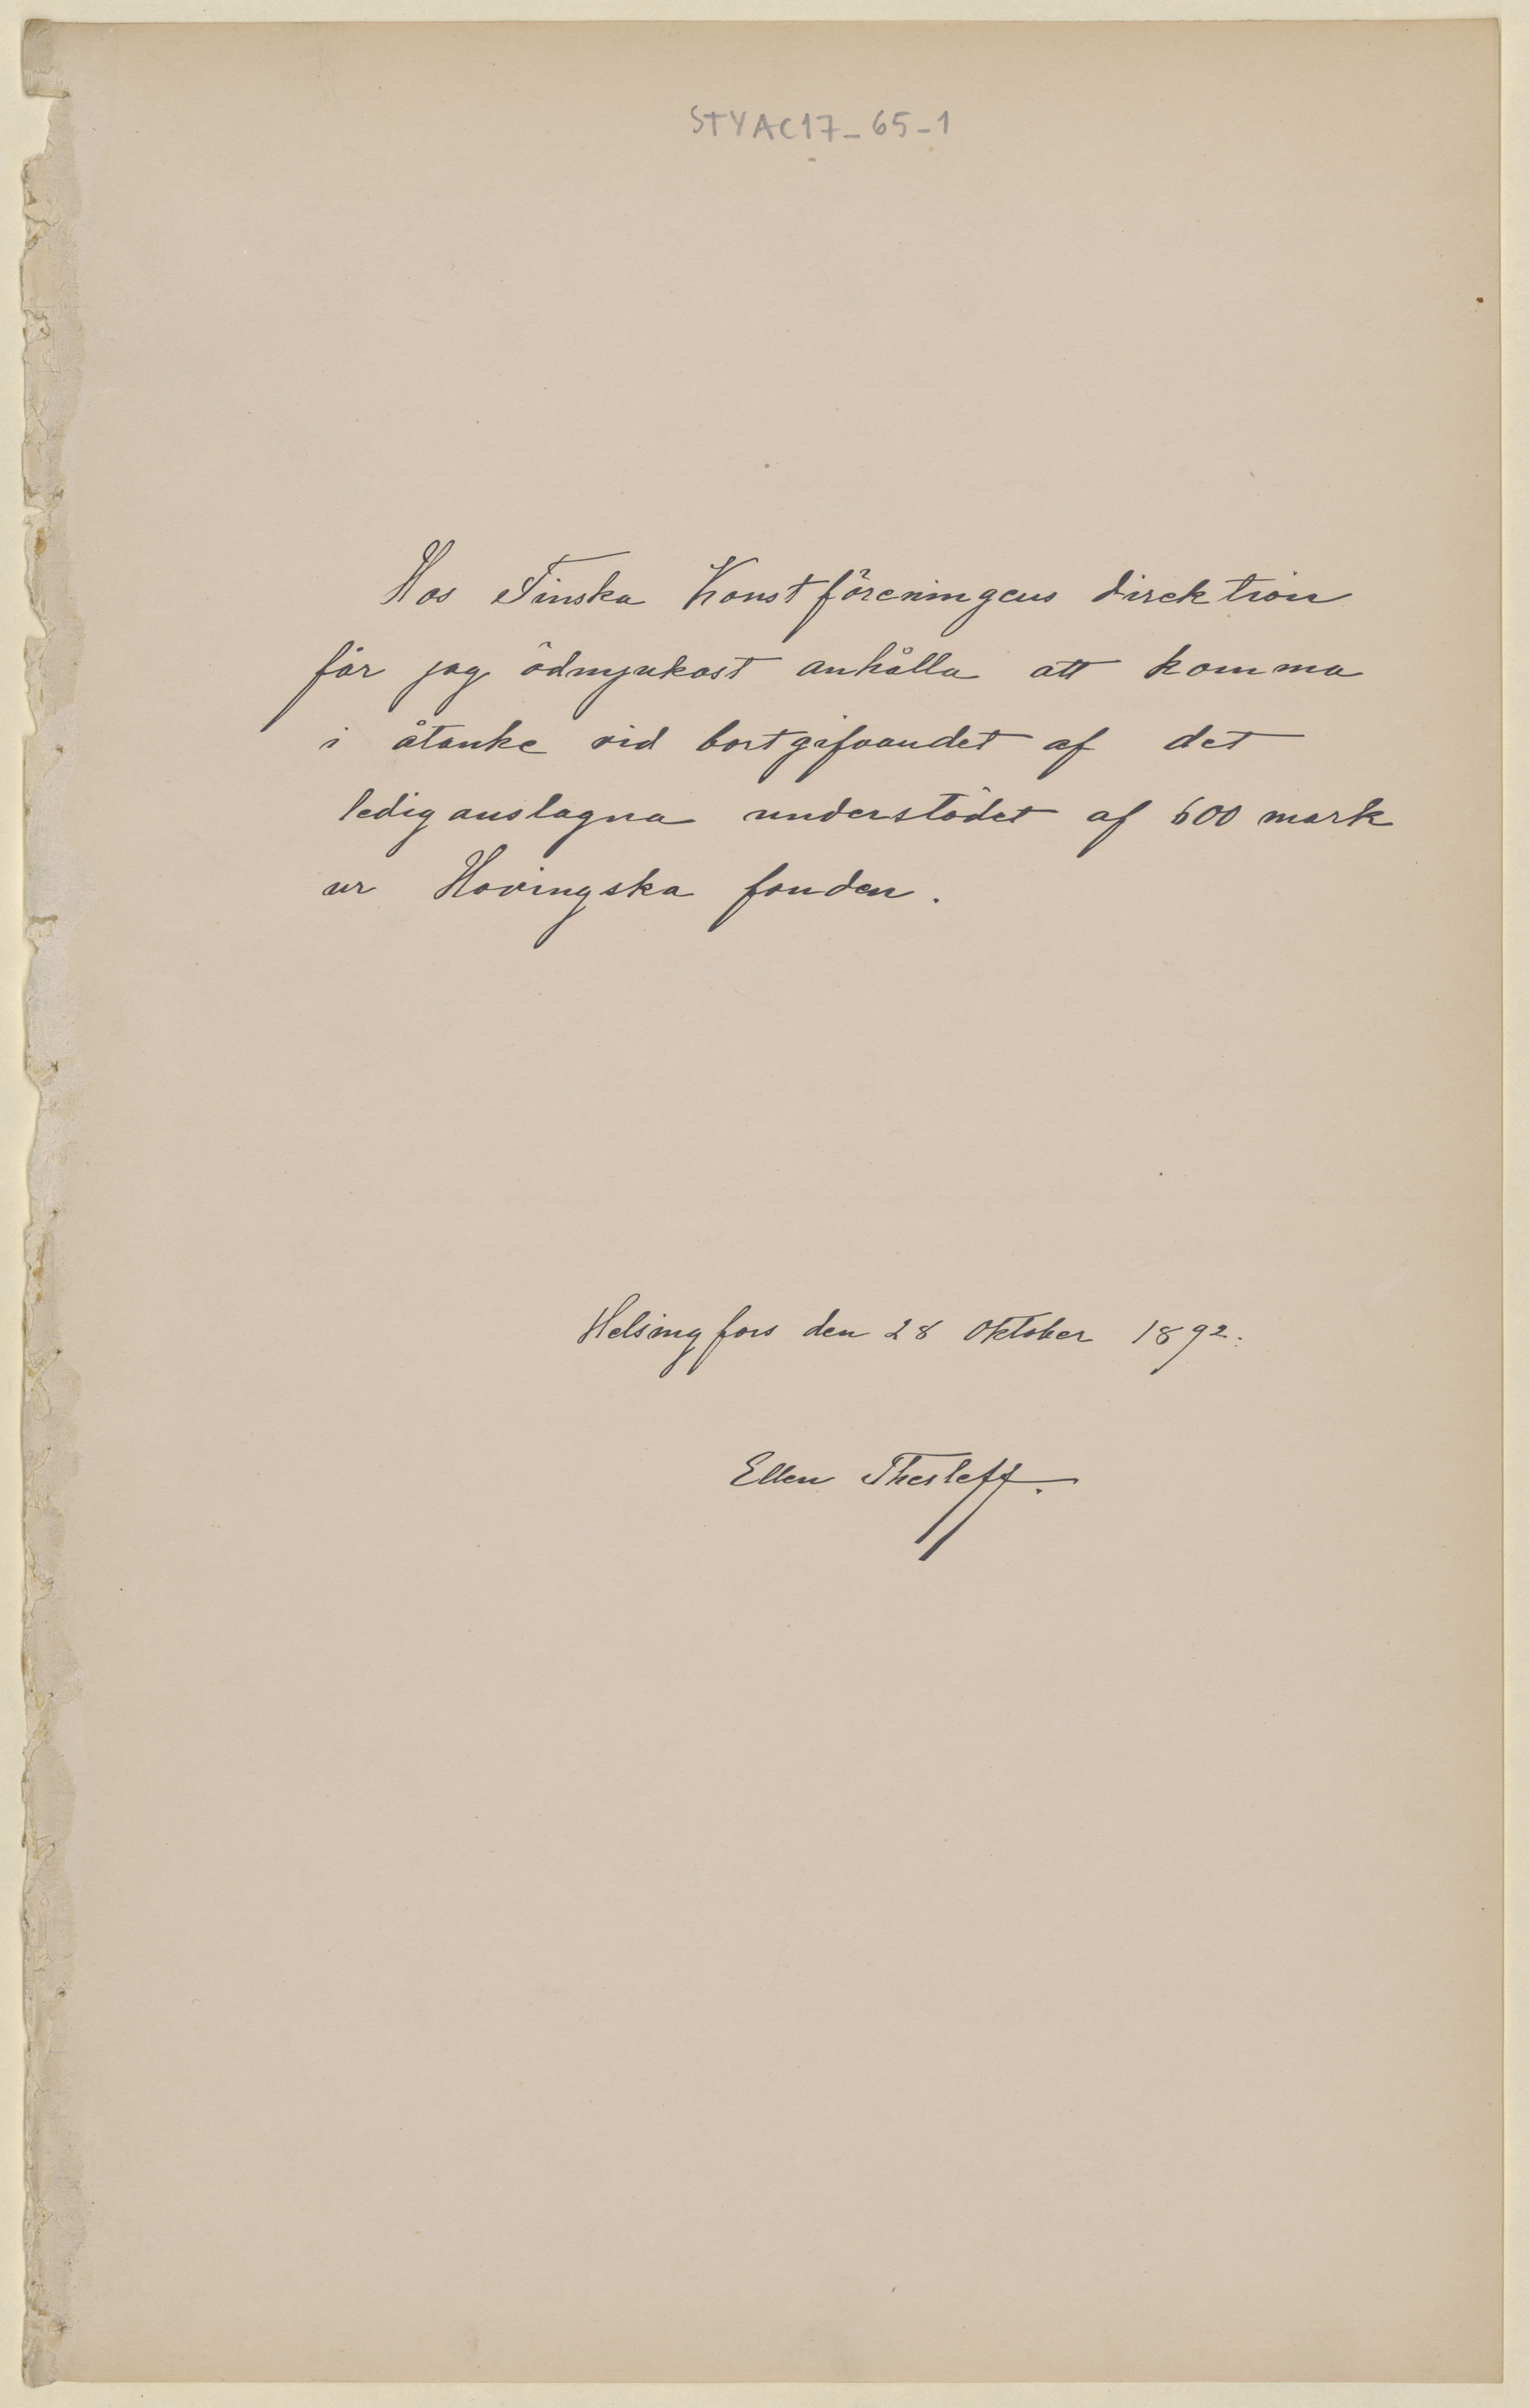 STYAC17-65-1
Hos Finska Konstföreningens direktion
får jag ödmjukast anhålla att komma
i åtanke vid bortgifvandet af det
lediganslagna understödet af 600 mark
ur Hovingska fonden.
Helsingfors den 28 Oktober 1892.
Ellen Thesleff.